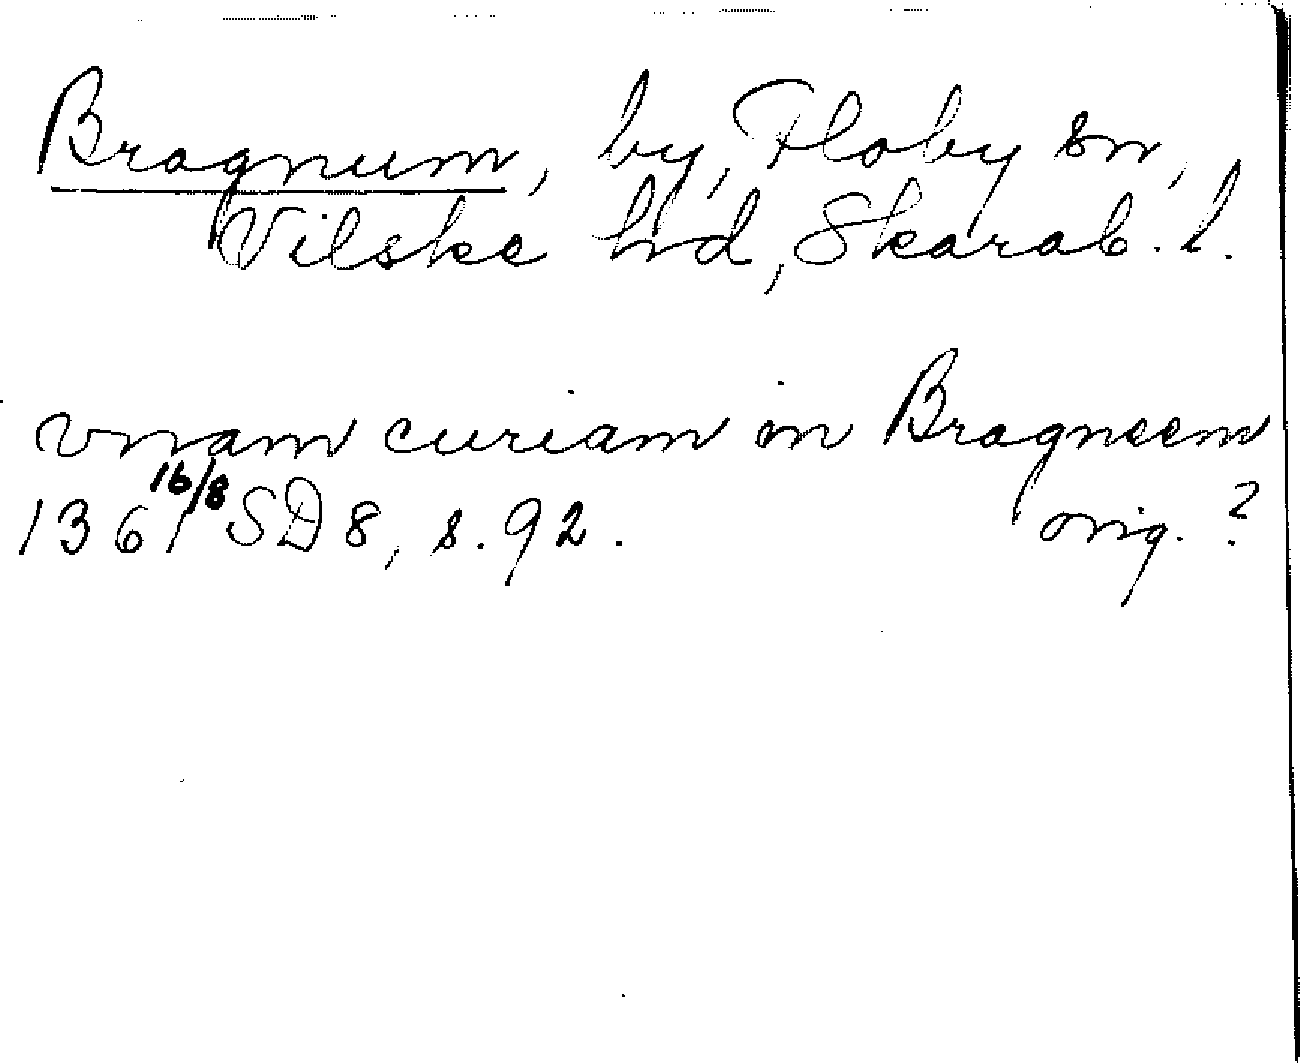 Bragnum, by, Floby sn,
Vilske hd, Skarab. l.
vnam curiam in Bragneem
1361 16/8 SD 8, s. 92. orig. ?